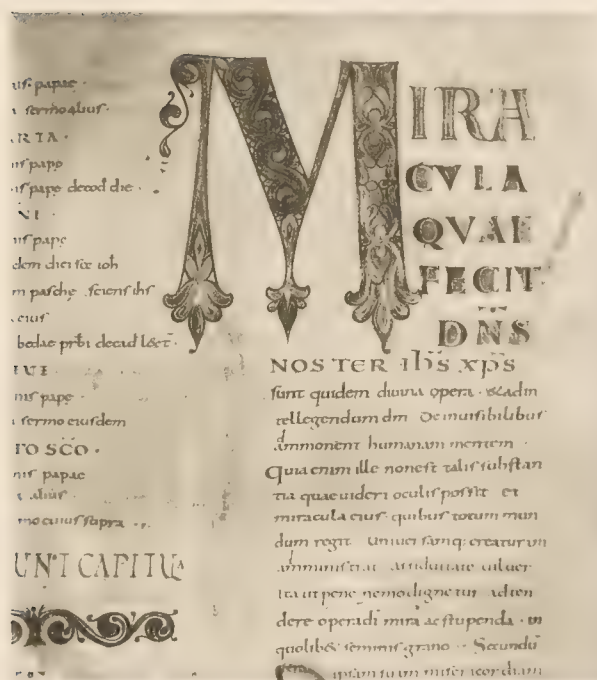 us papae ·
sermo alius ·
RTA ·
us pape
us pape decod die ·
NI ·
us pape
dem diei scē ioh
m pasche sciens ihs
eius
bedae prbi decad lect ·
IUI ·
nis pape ·
sermo eiusdem
TO SCO ·
nis papae
alius ·
mo cuius supra
UNT CAPITUL
MIRA
CVLA
QVAE
FECIT
DNS
NOSTER ihs xps
sunt quidem diuina opera · & adin
tellegendum dm De inuisibilibus
ammonent humanam mentem ·
Quia enim ille non est talis substan
tia quae uideri oculis possit et
miracula eius quibus totum mun
dum regit uniuersamq: creaturam
amministrat assiduitate uiluer
Ita ut pene nemo digne tur adten
dere operadi mira ac stupenda · in
quolib& seminis grano · Secundū
ipsam suam misericordiam